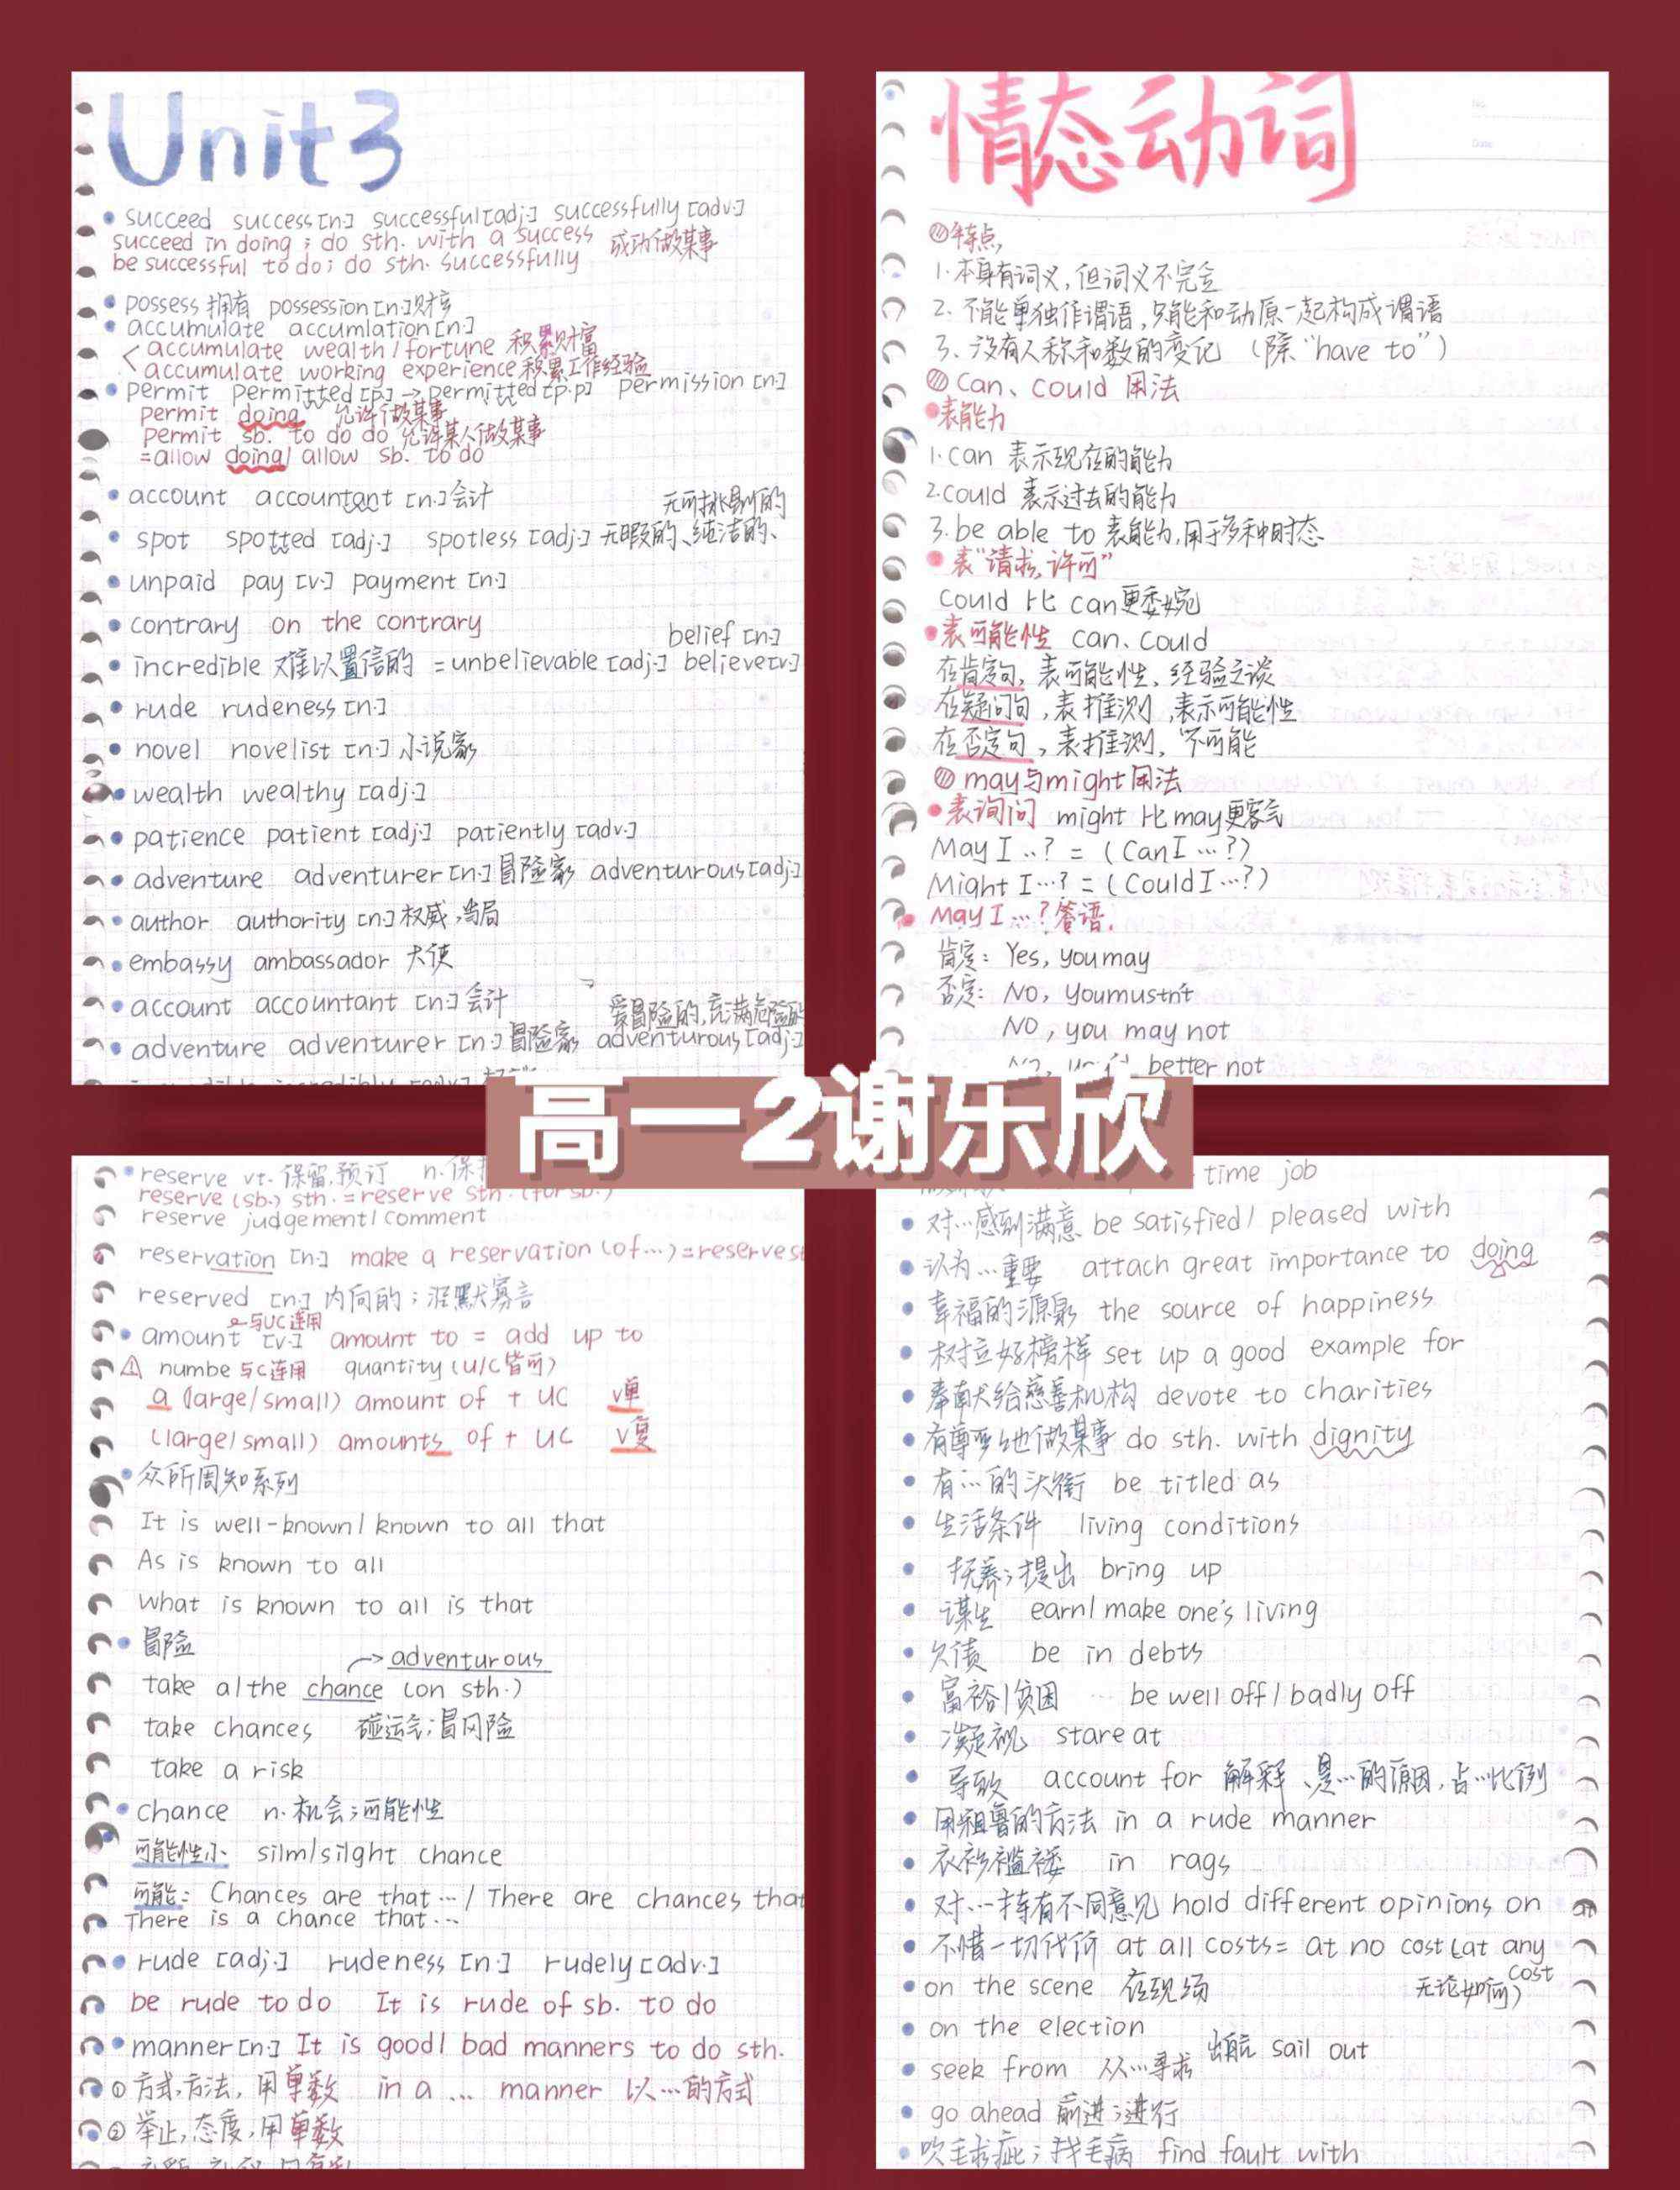 Unit3
succeed success[n.] successful[adj.] successfully [adv.]
succeed in doing; do sth. with a success 成功做某事
be successful to do; do sth. successfully
possess 拥有 possession[n.]财产
accumulate accumlation[n.]
accumulate wealth/fortune 积累财富
accumulate working experience 积累工作经验
permit permitted [p.] → permitted [p.p] permission [n.]
permit doing 允许做某事
permit sb. to do do 允许某人做某事
=allow doing/ allow sb. to do
account accountant [n.]会计
无可挑剔的
spot spotted [adj.] spotless [adj.] 无暇的、纯洁的、
unpaid pay [v.] payment [n.]
contrary on the contrary
belief [n.]
incredible 难以置信的 =unbelievable [adj.] believe[v.]
rude rudeness [n.]
novel novelist [n.] 小说家
wealth wealthy [adj.]
patience patient [adj.] patiently [adv.]
adventure adventurer [n.]冒险家 adventurous[adj.]
author authority [n.]权威,当局
embassy ambassador 大使
account accountant [n.]会计
爱冒险的,充满危险的
adventure adventurer [n.]冒险家 adventurous [adj.]
情态动词
特点
1.本身有词义,但词义不完全
2.不能单独作谓语,只能和动原一起构成谓语
3、没有人称和数的变化 (除“have to”)
can、could 用法
表能力
1.can 表示现在的能力
2.could 表示过去的能力
3.be able to 表能力,用于多种时态
表“请求,许可”
could 比 can更委婉
表可能性 can、could
在肯定句,表可能性,经验之谈
在疑问句,表推测,表示可能性
在否定句,表推测,不可能
may与might用法
表询问 might 比may更客气
May I …? = (Can I …?)
Might I…? = (Could I…?)
May I …?答语.
肯定: Yes, you may
否定: No, you mustn't
No, you may not
better not
高一2谢乐欣
reserve vt. 保留,预订 n.保
reserve (sb.) sth. = reserve sth. (for sb.)
reserve judgement/comment
reservation [n.] make a reservation (of…)=reserve s
reserved [n.] 内向的;沉默寡言
与UC连用
amount [v.] amount to = add up to
numbe 与C连用 quantity (U/C皆可)
a (large/small) amount of + UC v单
(large/small) amounts of + UC v复
众所周知系列
It is well-known/known to all that
As is known to all
what is known to all is that
冒险
→adventurous
take a/the chance (on sth.)
take chances 碰运气;冒风险
take a risk
chance n.机会;可能性
可能性小 silm/silght chance
可能: Chances are that …/ There are chances that
There is a chance that…
rude [adj.] rudeness [n.] rudely [adv.]
be rude to do It is rude of sb. to do
manner [n.] It is good/bad manners to do sth.
①方式,方法,用单数 in a … manner 以…的方式
②举止,态度,用单数
time job
对…感到满意 be satisfied/pleased with
认为…重要 attach great importance to doing
幸福的源泉 the source of happiness
树立好榜样 set up a good example for
奉献给慈善机构 devote to charities
有尊严地做某事 do sth. with dignity
有…的头衔 be titled as
生活条件 living conditions
抚养;提出 bring up
谋生 earn/make one's living
欠债 be in debts
富裕/贫困 be well off/badly off
凝视 stare at
导致 account for 解释、是…的原因,占…比例
用粗鲁的方法 in a rude manner
衣衫褴褛 in rags
对…持有不同意见 hold different opinions on
不惜一切代价 at all costs= at no cost (at any
cost
on the scene 在现场 无论如何)
on the election
出航 sail out
seek from 从…寻求
go ahead 前进;进行
吹毛求疵;找毛病 find fault with